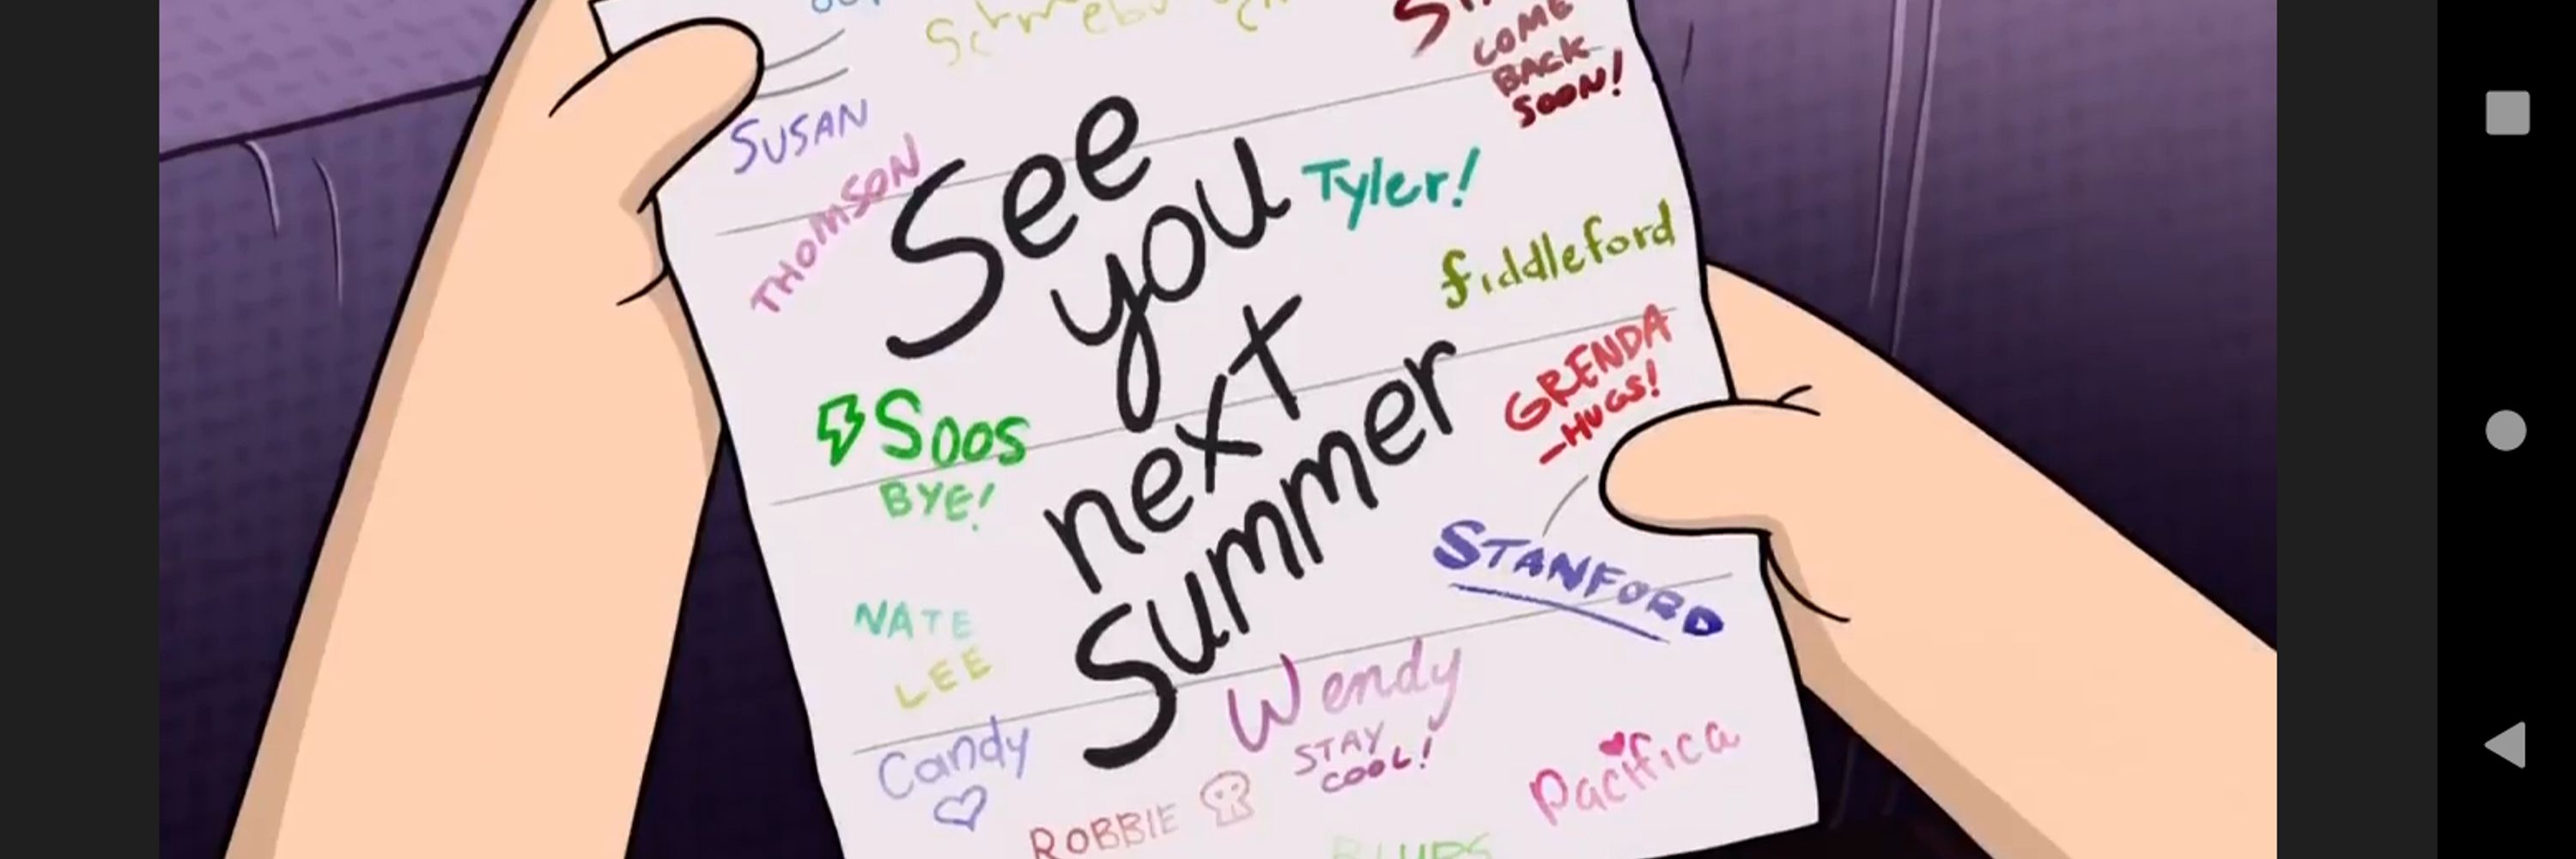 COME
BACK
SOON!
SUSAN
THOMSON
See
you
next
summer
Tyler!
fiddleford
GRENDA
-HUGS!
Soos
BYE!
STANFORD
NATE
LEE
Wendy
STAY
COOL!
Candy
Pacifica
ROBBIE